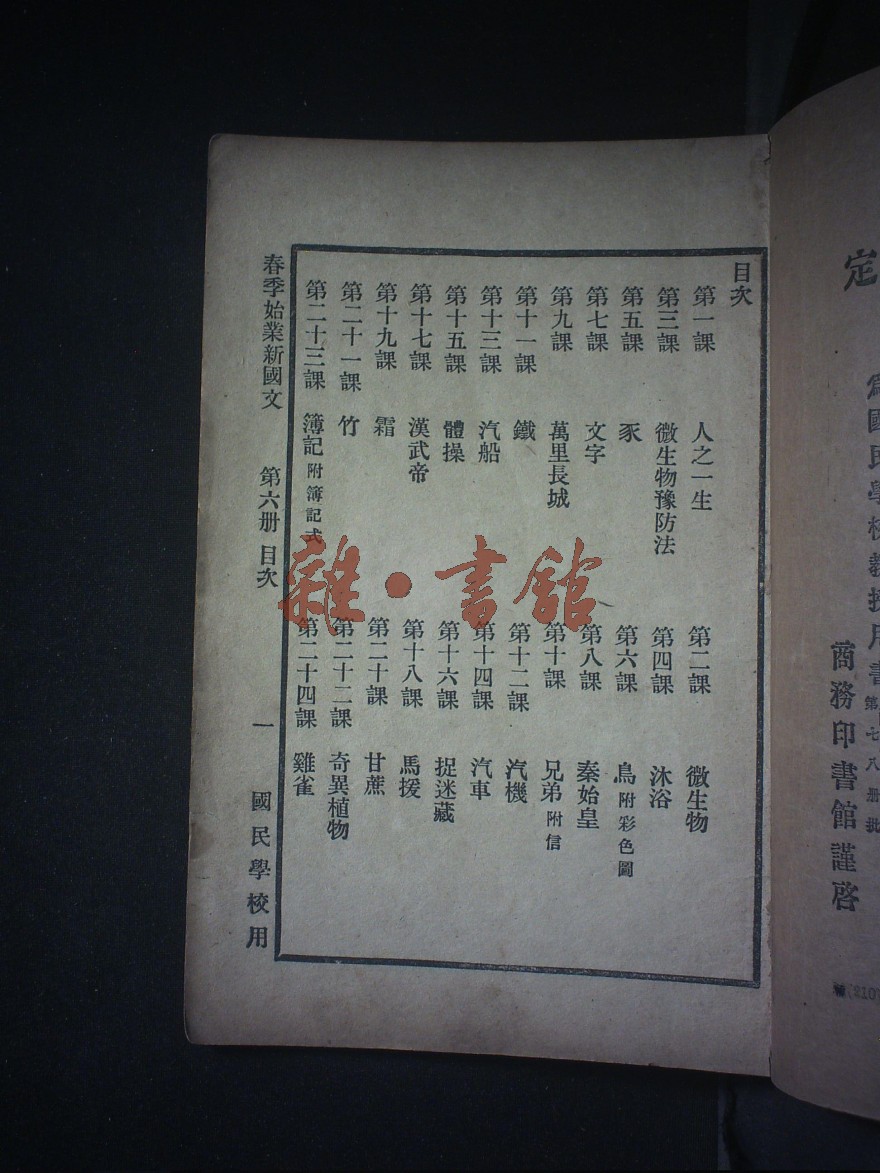 定
爲國民學校教授用書第七八册批
商務印書館謹啓
(210)
目次
第一課 人之一生 第二課 微生物
第三課 微生物豫防法 第四課 沐浴
第五課 豕 第六課 鳥附彩色圖
第七課 文字 第八課 秦始皇
第九課 萬里長城 第十課 兄弟附信
第十一課 鐵 第十二課 汽機
第十三課 汽船 第十四課 汽車
第十五課 體操 第十六課 捉迷藏
第十七課 漢武帝 第十八課 馬援
第十九課 霜 第二十課 甘蔗
第二十一課 竹 第二十二課 奇異植物
第二十三課 簿記附簿記式 第二十四課 雞雀
春季始業新國文 第六册 目次 一 國民學校用
雜·書館